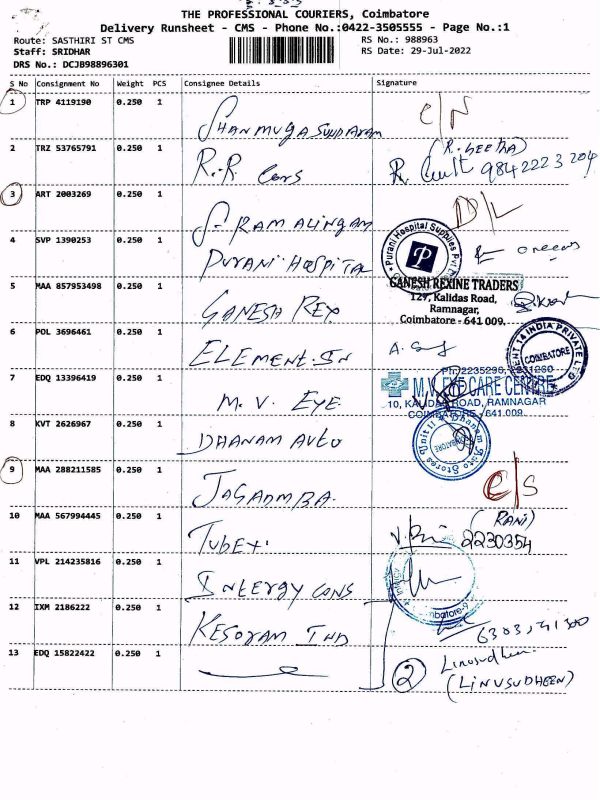 THE PROFESSIONAL COURIERS, Coimbatore
Delivery Runsheet - CMS - Phone No.:0422-3505555 - Page No.:1
Route: SASTHIRI ST CMS
RS No.: 988963
Staff: SRIDHAR
RS Date: 29-Jul-2022
DRS No.: DCJB98896301
S No Consignment No Weight PCS Consignee Details Signature
1 TRP 4119190 0.250 1 SHANMUGA SUNDARAM C/N
2 TRZ 53765791 0.250 1 R.R. Cons (R. Geetha) 9842223204
3 ART 2003269 0.250 1 S. RAMALINGAM D/L
4 SVP 1390253 0.250 1 PURANI HOSPITAL
Purani Hospital Supplies Pvt
P
5 MAA 857953498 0.250 1 GANESH REX
GANESH REXINE TRADERS
127, Kalidas Road,
Ramnagar,
Coimbatore - 641 009.
6 POL 3696461 0.250 1 ELEMENT.IN A.
INDIA PRIVATE LTD
COIMBATORE
7 EDQ 13396419 0.250 1 M. V. EYE
M.V. EYE CARE CENTRE
10, KALIDAS ROAD, RAMNAGAR
COIMBATORE - 641 009.
8 KVT 2626967 0.250 1 DHANAM AUTO
Dhanam Auto Stores Unit II
9 MAA 288211585 0.250 1 JAGADMBA. C/S
10 MAA 567994445 0.250 1 TUBEX. (RANI) 2230354
11 VPL 214235816 0.250 1 INTERGY CONS
12 IXM 2186222 0.250 1 KESORAM IND
13 EDQ 15822422 0.250 1 2 Linusudheen
(LINUSUDHEEN)